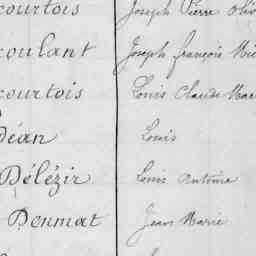 courtois Joseph Pierre
coulant Joseph françois
courtois Louis Claude
déan Louis
Délézir Louis Antoine
Denmat Jean Marie